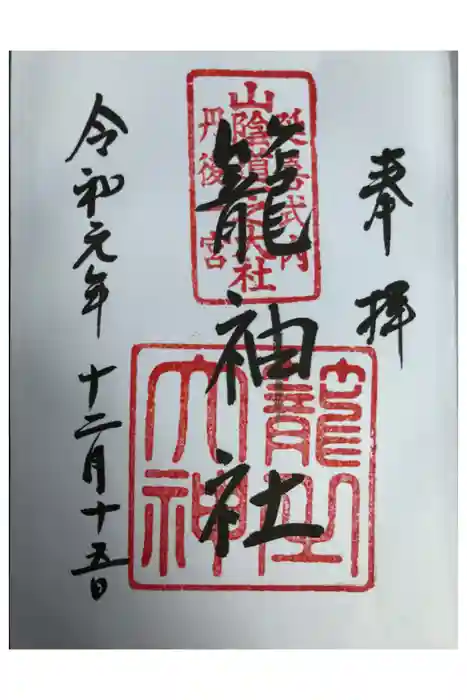 奉拝
延喜式内
山陰道一之大社
丹後一宮
籠神社
籠之
大神
令和元年十二月十五日